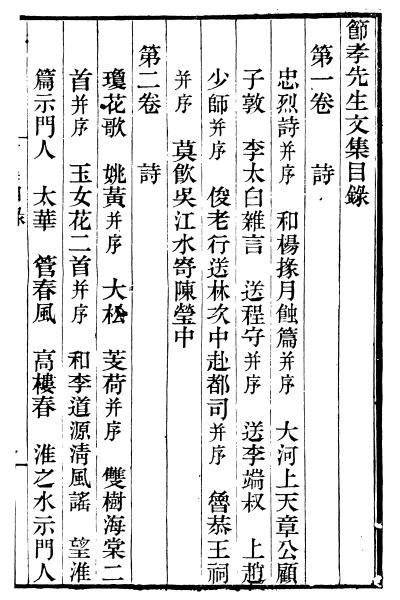 節孝先生文集目錄
第一卷　詩
忠烈詩并序　和楊掾月蝕篇并序　大河上天章公顧
子敦　李太白雜言　送程守并序　送李端叔　上趙
少師并序　俊老行送林次中赴都司并序　魯恭王祠
并序　莫飲吳江水寄陳瑩中
第二卷　詩
瓊花歌　姚黃并序　大松　芰荷并序　雙樹海棠二
首并序　玉女花二首并序　和李道源淸風謠　望淮
篇示門人　太華　管春風　高樓春　淮之水示門人